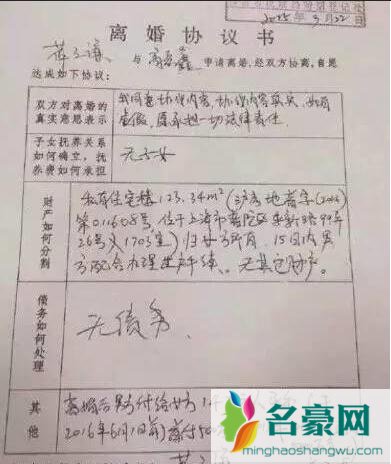 2015年9月22日
离婚协议书
与 申请离婚，经双方协商，自愿
达成如下协议：
双方对离婚的
真实意思表示
我同意协议内容，协议内容真实，如有
虚假，愿承担一切法律责任.
子女抚养关系
如何确立，抚
养费如何承担
无子女
财产如何分割
私有住宅楼123.34m²(沪房地普字(2014)
第011608号，位于上海市普陀区 路99弄
26号 1703室)归女方所有，15日内男
方配合办理过户手续、无其它财产。
债务如何处理
无债务.
其他
离婚后男方付给女方
2016年6月1日前 付50
名豪网
minghaoshangwu.com